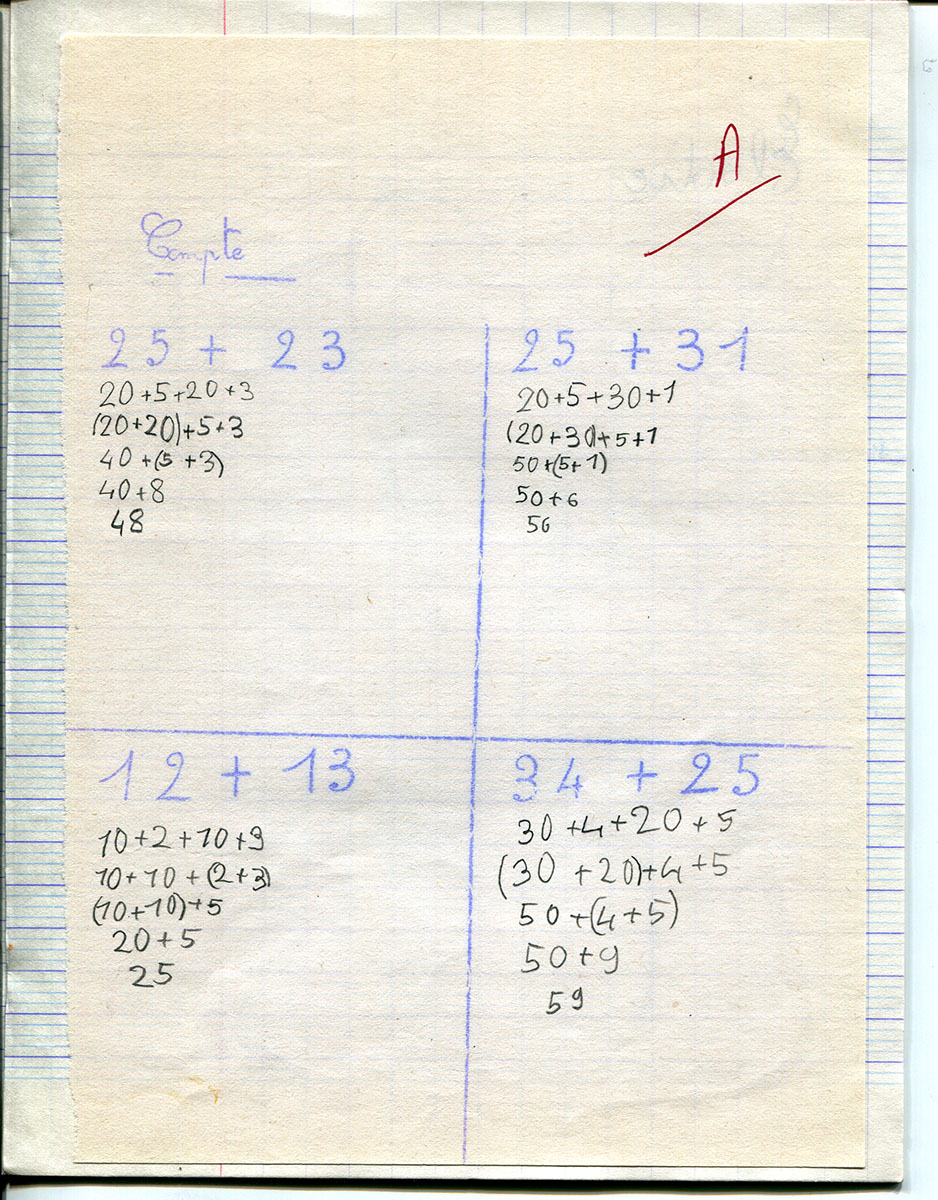 A
Compte
25 + 23
20+5+20+3
(20+20)+5+3
40+(5+3)
40+8
48
25 + 31
20+5+30+1
(20+30)+5+1
50+(5+1)
50+6
56
12 + 13
10+2+10+3
10+10+(2+3)
(10+10)+5
20+5
25
34 + 25
30+4+20+5
(30+20)+4+5
50+(4+5)
50+9
59